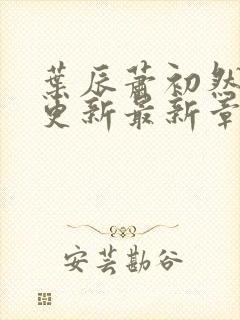 葉辰蕭初然
更新最新章
安芸勘谷